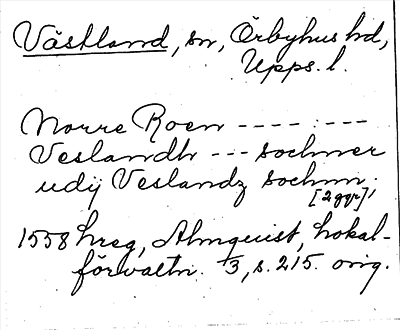 Västland, sn, Örbyhus hd,
Upps. l.
Norre Roen ---- : ---
Veslandh --- sochner
udij Veslandz sochnn.
[2 ggr]
1558 hreg, Almquist, Lokal-
förvaltn. 3, s. 215. orig.